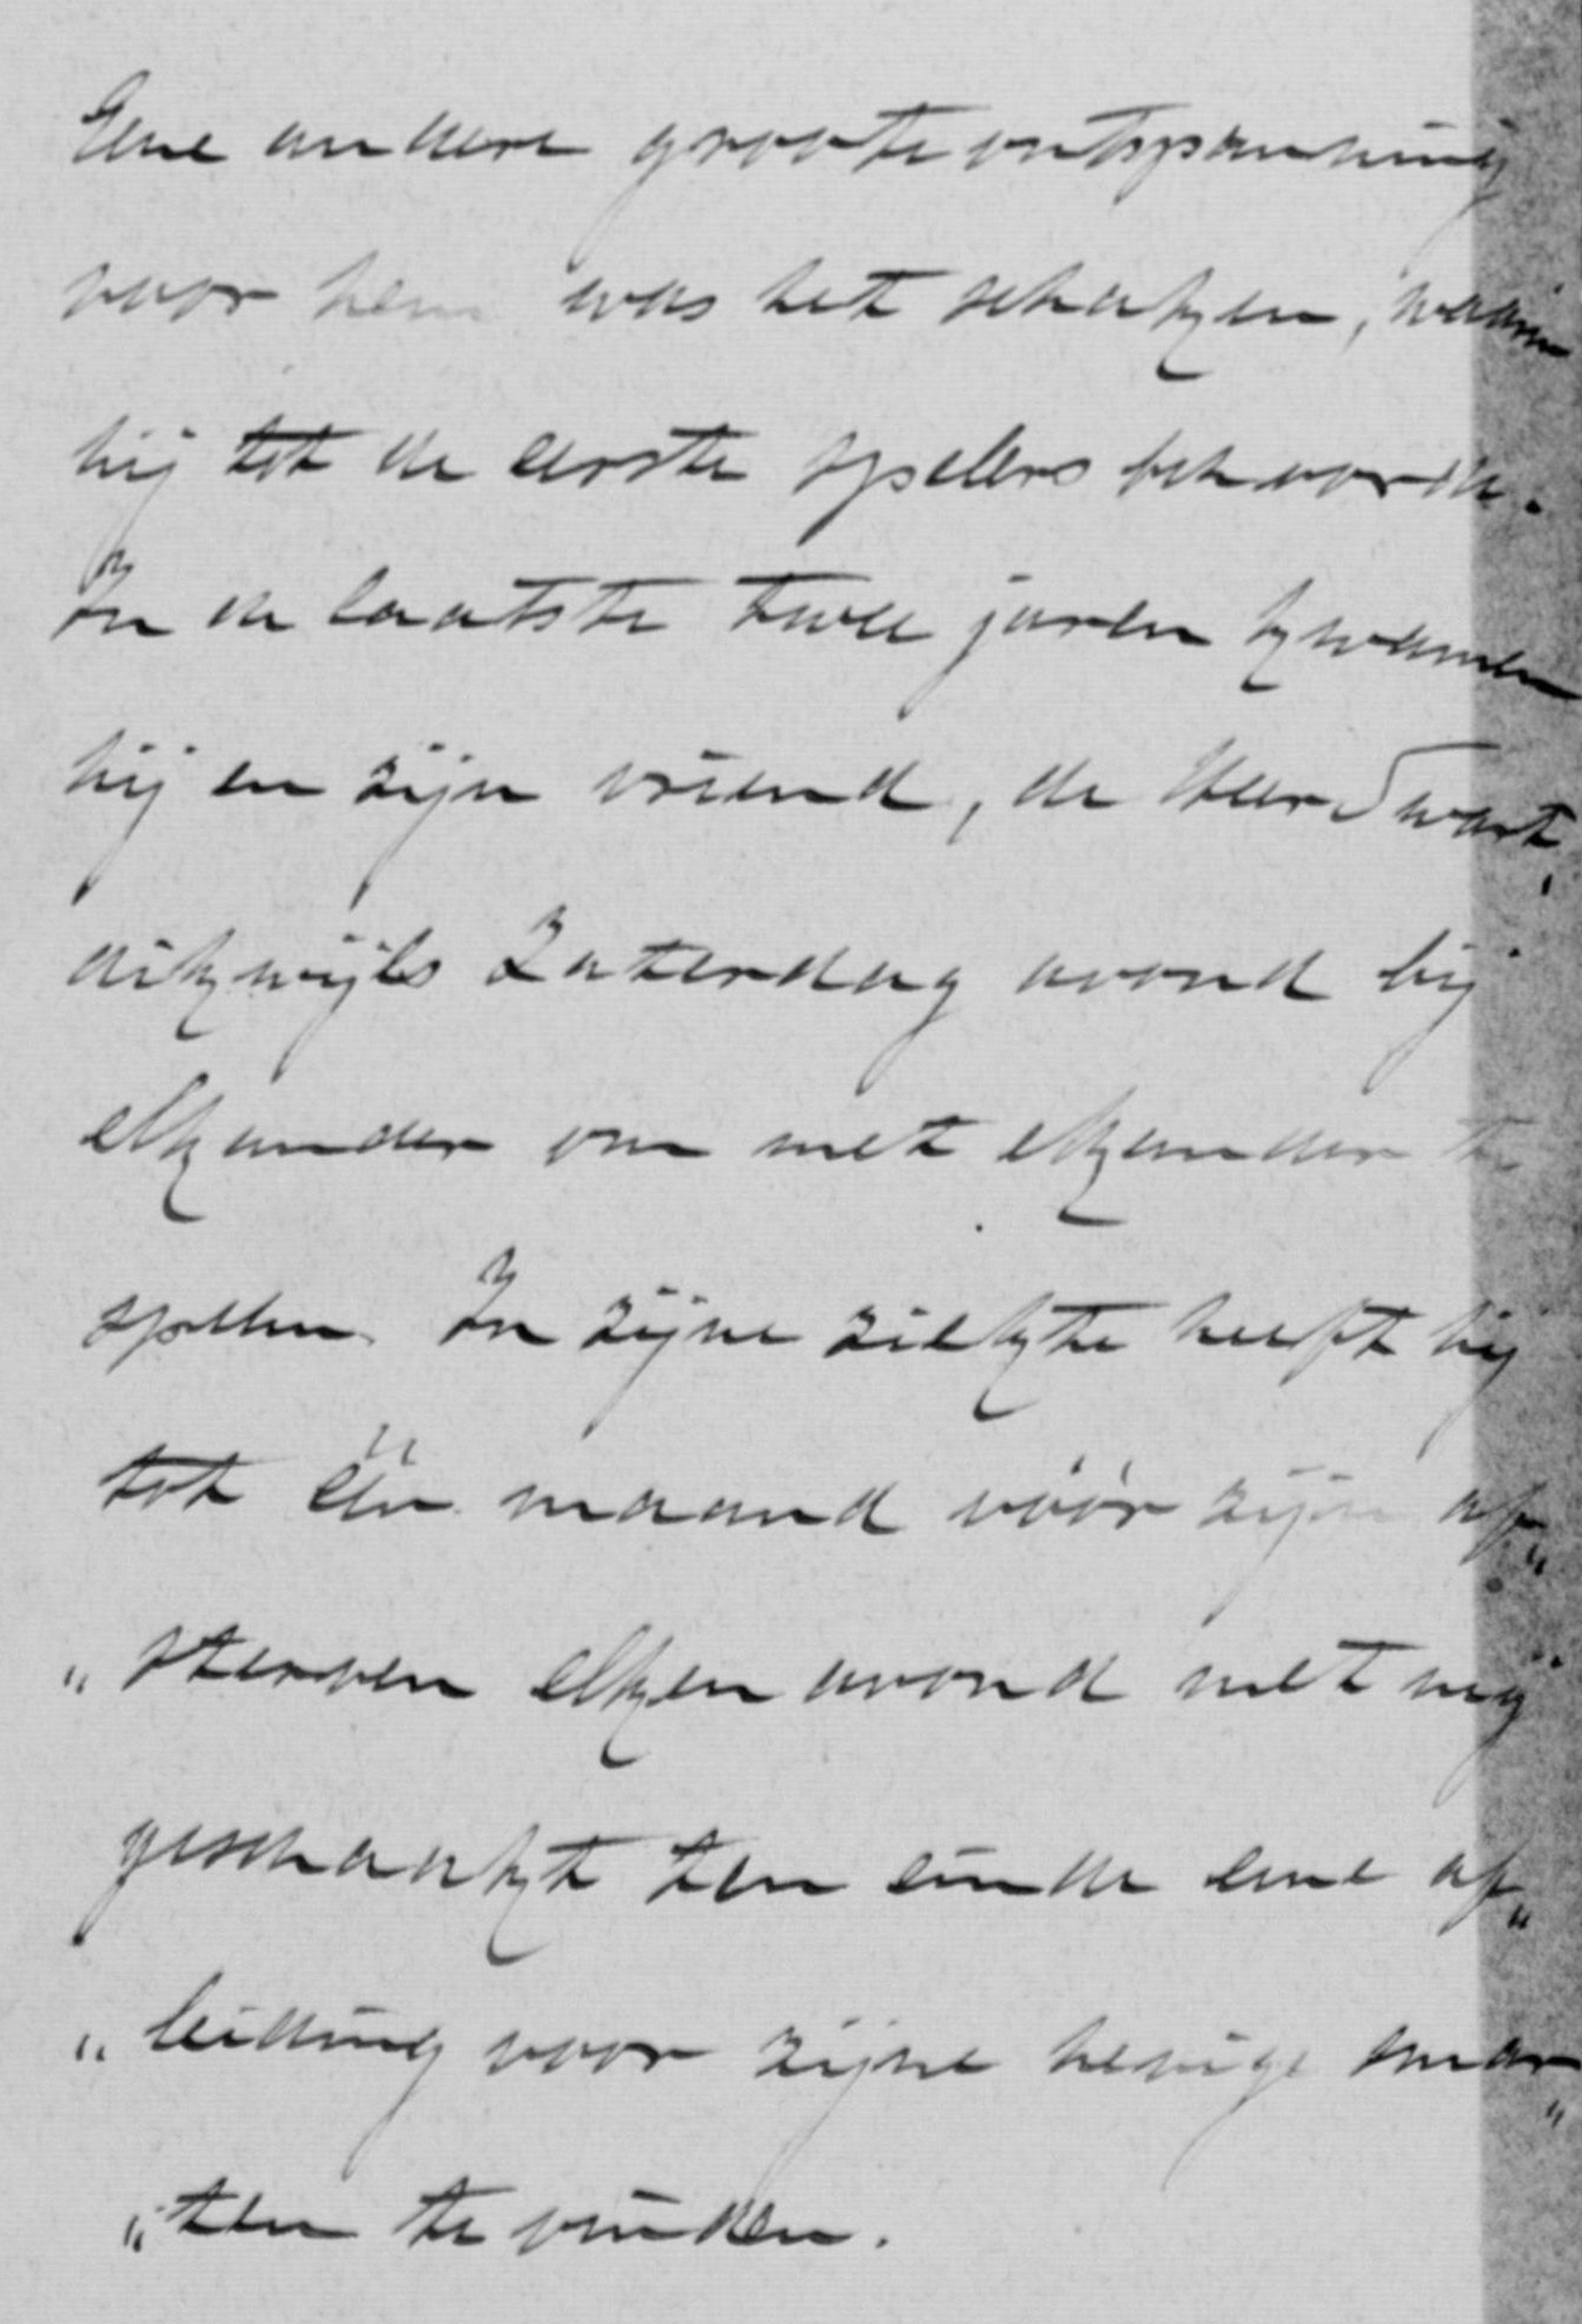 Eene andere groote ontspanning
voor hem was het schaken, waarin
hij tot de eerste spelers behoorde.
In de laatste twee jaren kwamen
hij en zijn vriend, de Heer Swart,
dikwijls Zaterdag avond bij
elkander om met elkander te
spelen. In zijne ziekte heeft hij
tot één maand vóór zijn af„
„sterven elken avond met mij
geschaakt ten einde eene af„
„leiding voor zijne hevige smar„
„ten te vinden.